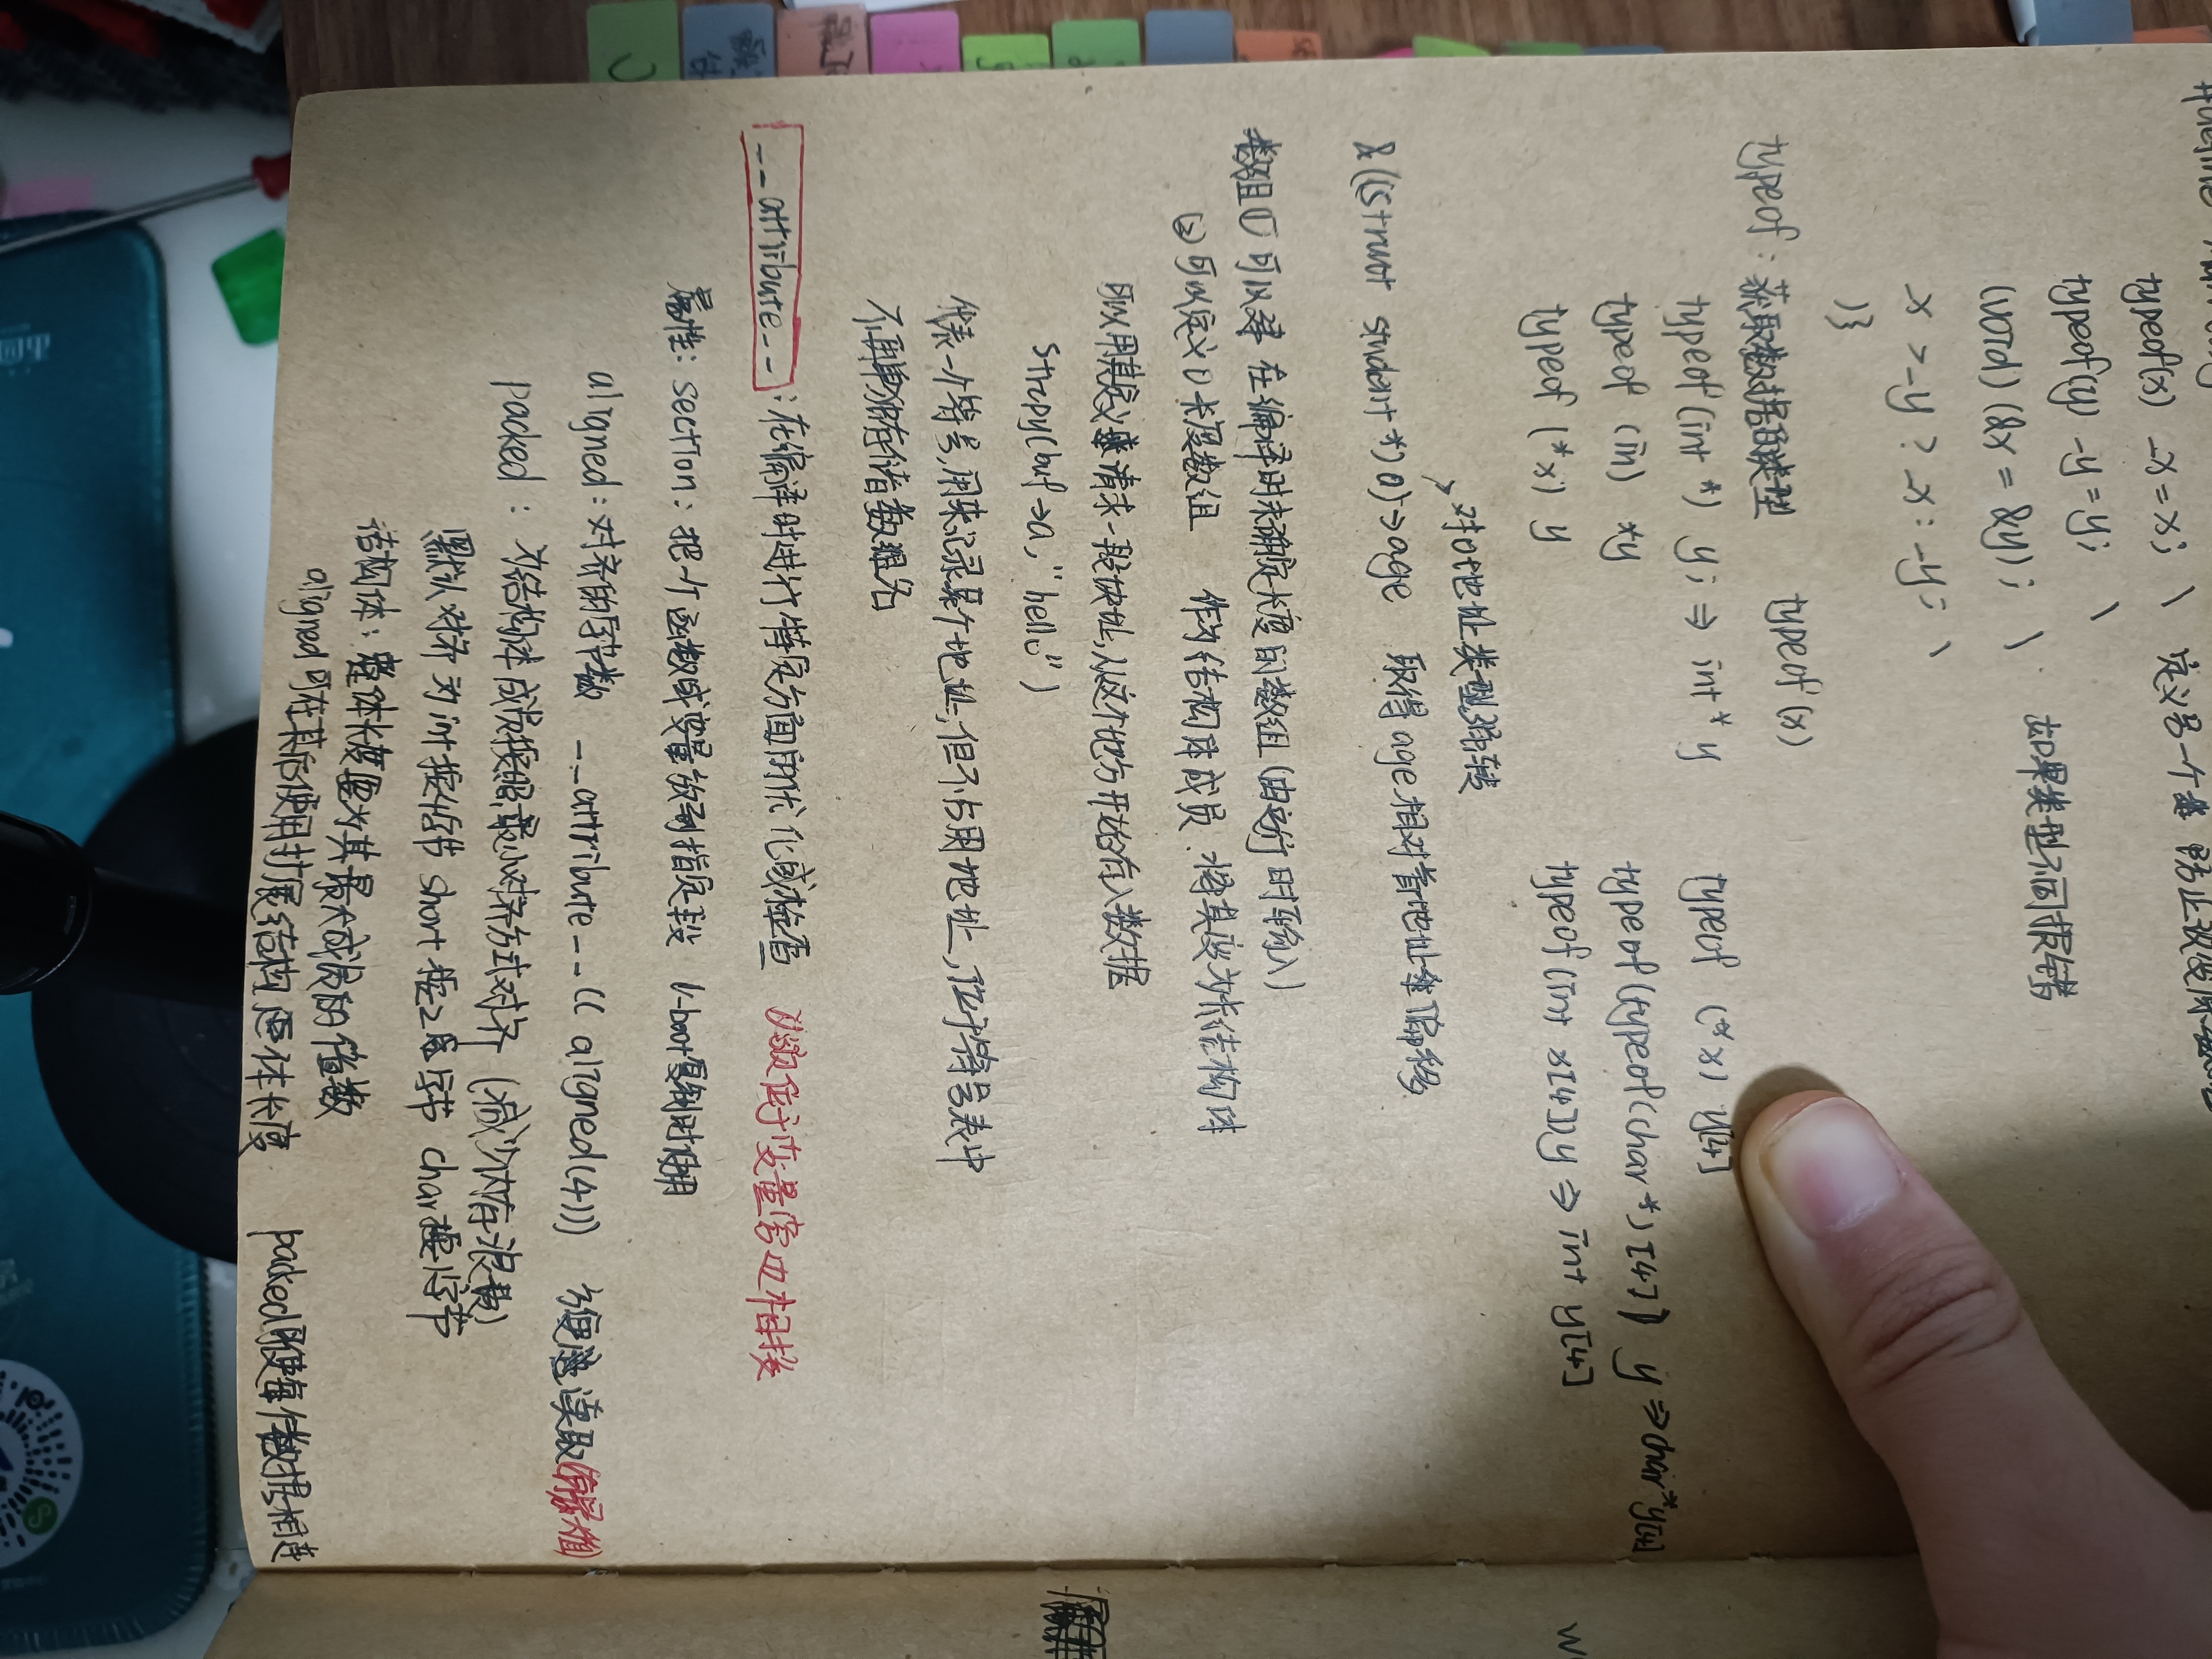 typeof(x) _x = x; \ 定义另一个
typeof(y) _y = y; \
(void) (&x = &y); \ 如果类型不同报错
_x > _y ? _x : _y; \
)}
typeof : 获取数据的类型 typeof (x)
typeof (int *) y; ⇒ int * y
typeof (*x) y[4]
typeof (in) *y
typeof(typeof(char *)[4]) y ⇒ char *y[4]
typeof (*x) y
typeof(int x[4])y ⇒ int y[4]
→对0地址类型强转
&((struct student *) 0)->age 取得 age 相对首地址 偏移
数组① 可以 在编译时未确定长度的数组 (由运行时输入)
② 可以定义0长度数组 作为结构体成员. 将其变为 结构体
可以用其 请求一段 从这个地方开始存入数据
strcpy(buf->a, "hello")
代表一个符号, 用来记录某个地址, 但不占用地址, 位于符号表中
不再单独存储数组名
__attribute__ : 在编译时进行特定方面的优化或检查 变量 相接
属性: section: 把一个函数或变量放到指定段 U-boot复制时使用
aligned: 对齐的字节数 __attribute__(( aligned(4))) 读取
packed : 为结构体成员按照最小对齐方式对齐 (减少内存浪费)
默认对齐为 int 按4字节 short 按2字节 char按1字节
结构体: 整体长度要为其最大成员的倍数
aligned 可在其后使用扩展结构整体长度 packed